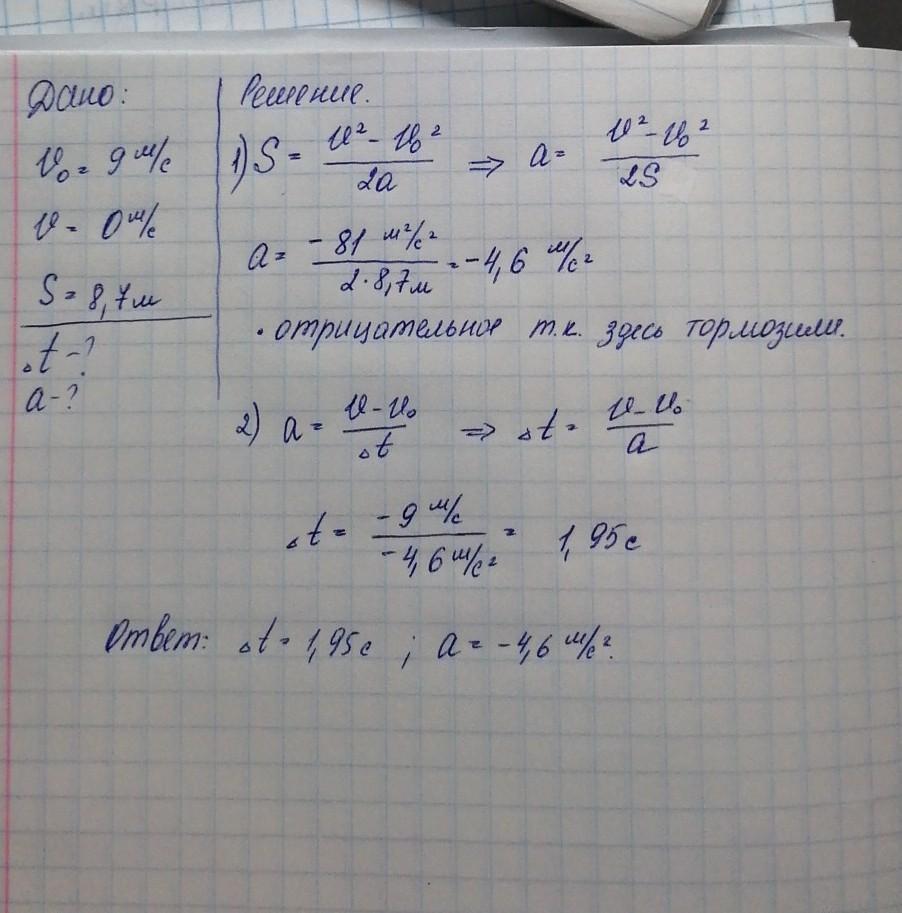 Дано:
υ₀ = 9 м/с
υ = 0 м/с
S = 8,7 м
Δt - ?
a - ?
Решение.
1) S = (υ² - υ₀²)/(2a) ⇒ a = (υ² - υ₀²)/(2S)
a = (-81 м²/с²)/(2·8,7м) = -4,6 м/с²
• отрицательное т.к. здесь тормозили.
2) a = (υ - υ₀)/(Δt) ⇒ Δt = (υ - υ₀)/a
Δt = (-9 м/с)/(-4,6 м/с²) = 1,95 с
Ответ: Δt = 1,95 с ; a = -4,6 м/с².